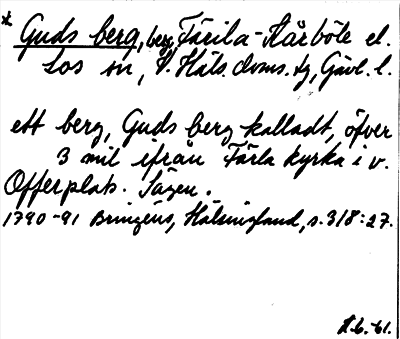 * Guds berg, berg, Färila-Kårböle el.
Los sn, V. Häls. doms. tg, Gävl. l.
ett berg, Guds berg kalladt, öfver
3 mil ifrån Färla kyrka i v.
Offerplats. Sägen.
1790-91 Bringéus, Hälsingland, s. 318:27.